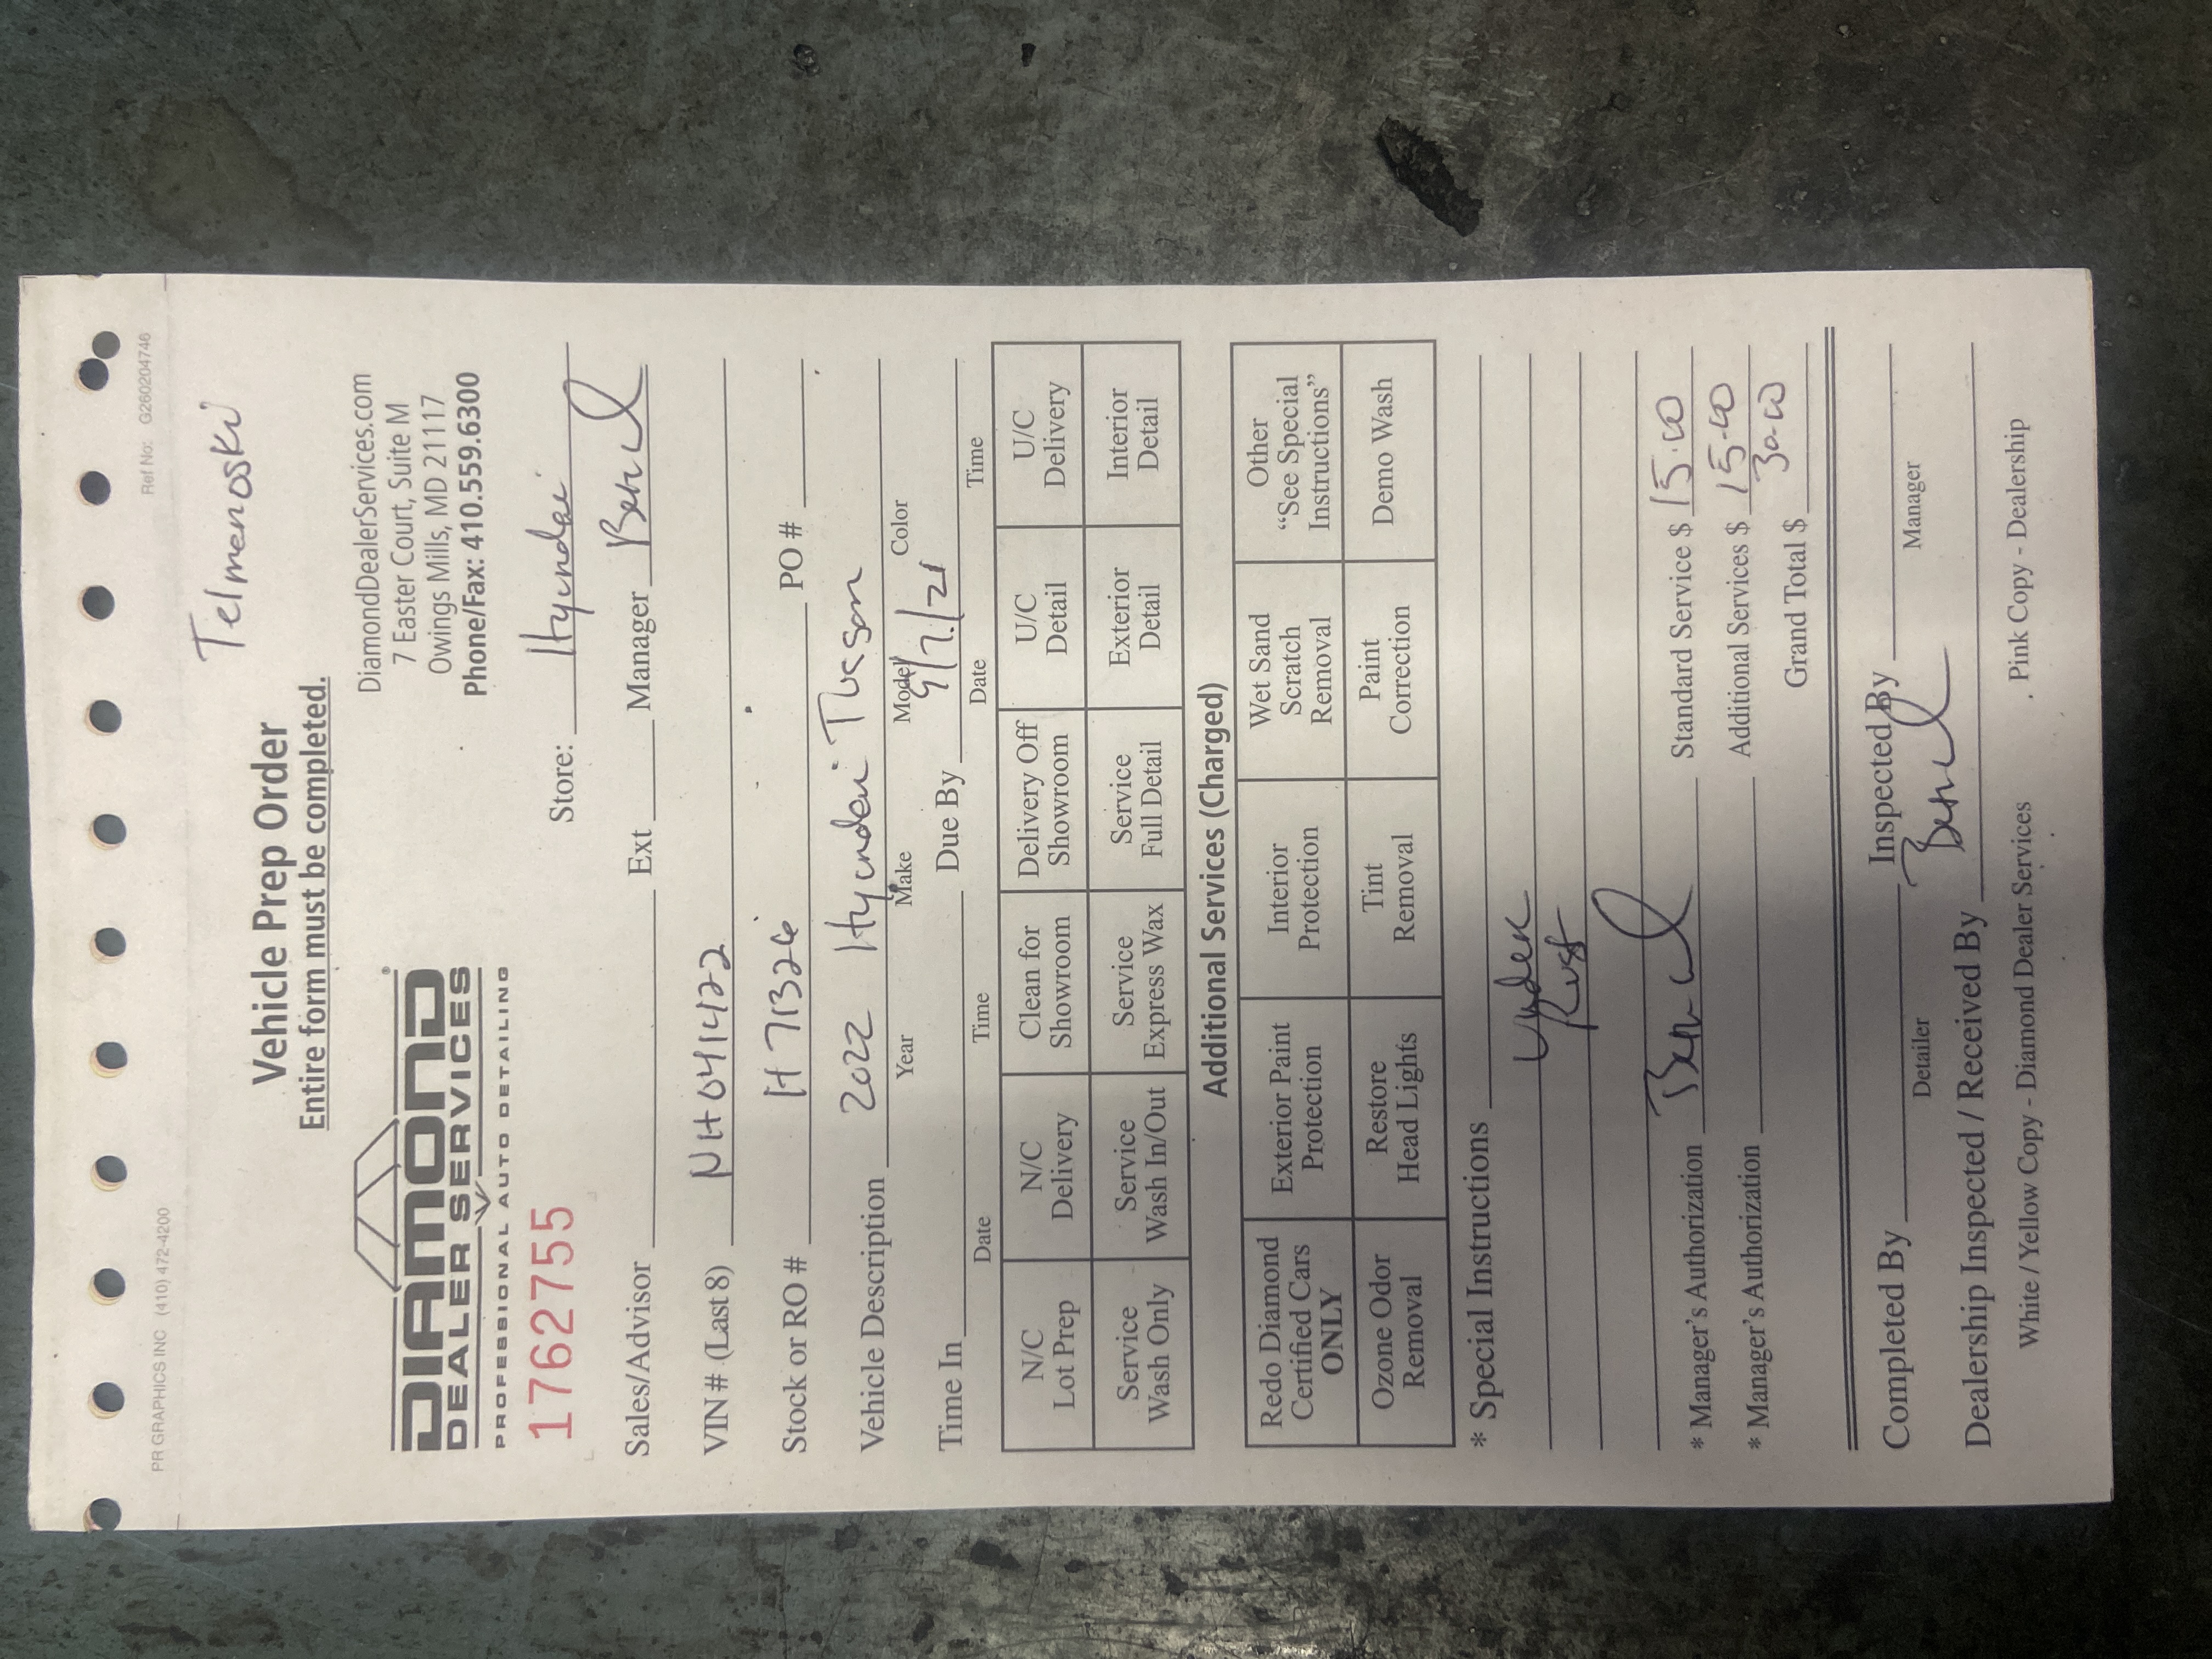 PR GRAPHICS INC (410) 472-4200 Ref No: G260204746
Telmenoski
Vehicle Prep Order
Entire form must be completed.
DIAMOND
DEALER SERVICES
PROFESSIONAL AUTO DETAILING
DiamondDealerServices.com
7 Easter Court, Suite M
Owings Mills, MD 21117
Phone/Fax: 410.559.6300
1762755
Store: Hyundai
Sales/Advisor Ext Manager
VIN # (Last 8) NH041422
Stock or RO # H71326 PO #
Vehicle Description 2022 Hyundai Tucson
Year Make Model Color
Time In Due By 9/7/21
Date Time Date Time
N/C Lot Prep N/C Delivery Clean for Showroom Delivery Off Showroom U/C Detail U/C Delivery
Service Wash Only Service Wash In/Out Service Express Wax Service Full Detail Exterior Detail Interior Detail
Additional Services (Charged)
Redo Diamond Certified Cars ONLY Exterior Paint Protection Interior Protection Wet Sand Scratch Removal Other "See Special Instructions"
Ozone Odor Removal Restore Head Lights Tint Removal Paint Correction Demo Wash
* Special Instructions
Under
Rust
* Manager's Authorization Standard Service $ 15.00
* Manager's Authorization Additional Services $ 15.00
Grand Total $ 30.00
Completed By Inspected By
Detailer Manager
Dealership Inspected / Received By
White / Yellow Copy - Diamond Dealer Services Pink Copy - Dealership